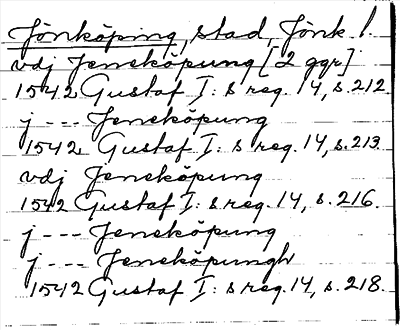 Jönköping, stad, Jönk. l.
vdj Jeneköpung [2 ggr]
1542 Gustaf I: s reg. 14, s. 212
j --- Jeneköpung
1542 Gustaf I: s reg. 14, s. 213
vdj Jeneköpung
1542 Gustaf I: s reg. 14, s. 216.
j --- Jeneköpung
j --- Jeneköpungh
1542 Gustaf I: s reg. 14, s. 218.